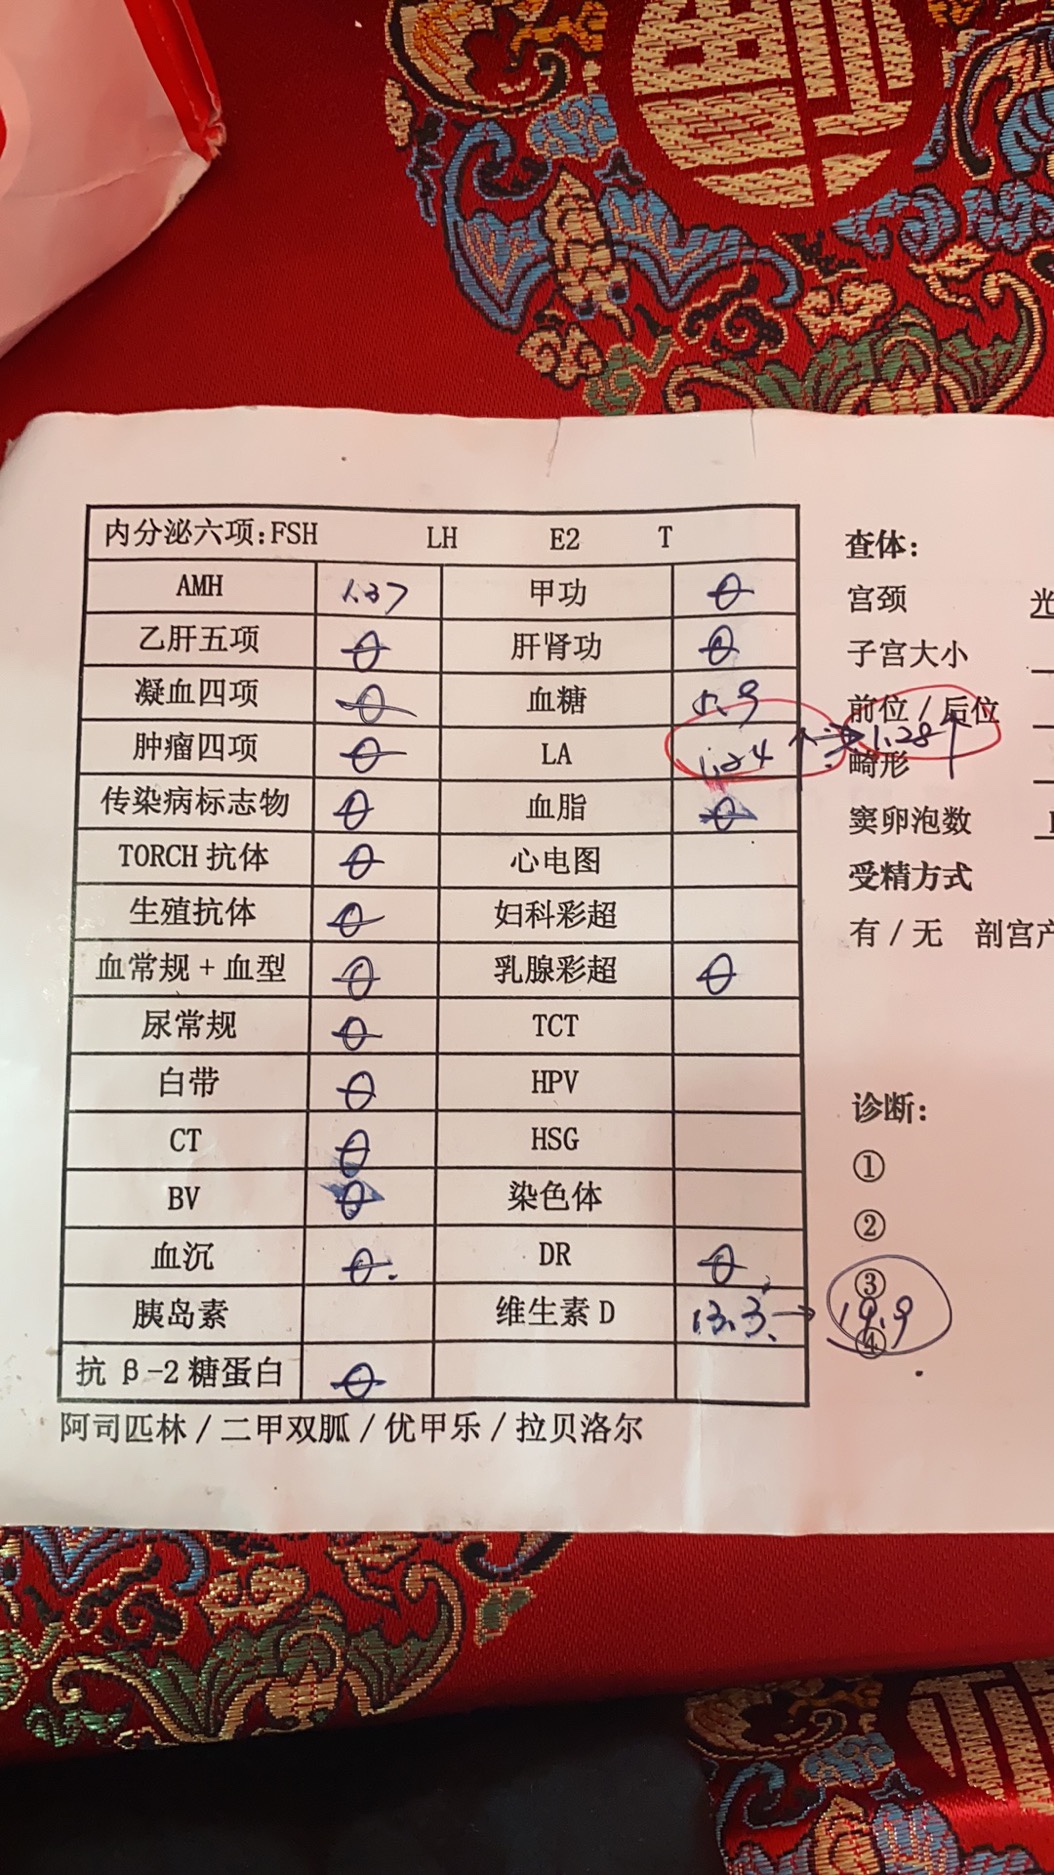 内分泌六项:FSH LH E2 T
AMH 1.37 甲功 θ
乙肝五项 θ 肝肾功 θ
凝血四项 θ 血糖 5.9
肿瘤四项 θ LA 1.24 ↑ → 1.28↑
传染病标志物 θ 血脂 θ
TORCH 抗体 θ 心电图
生殖抗体 θ 妇科彩超
血常规+血型 θ 乳腺彩超 θ
尿常规 θ TCT
白带 θ HPV
CT θ HSG
BV θ 染色体
血沉 θ. DR θ
胰岛素 维生素 D 13.3. → 19.9
抗 β-2 糖蛋白 θ
阿司匹林/二甲双胍/优甲乐/拉贝洛尔
查体:
宫颈 光
子宫大小
前位/后位
畸形
窦卵泡数
受精方式
有/无 剖宫产
诊断:
①
②
③
④